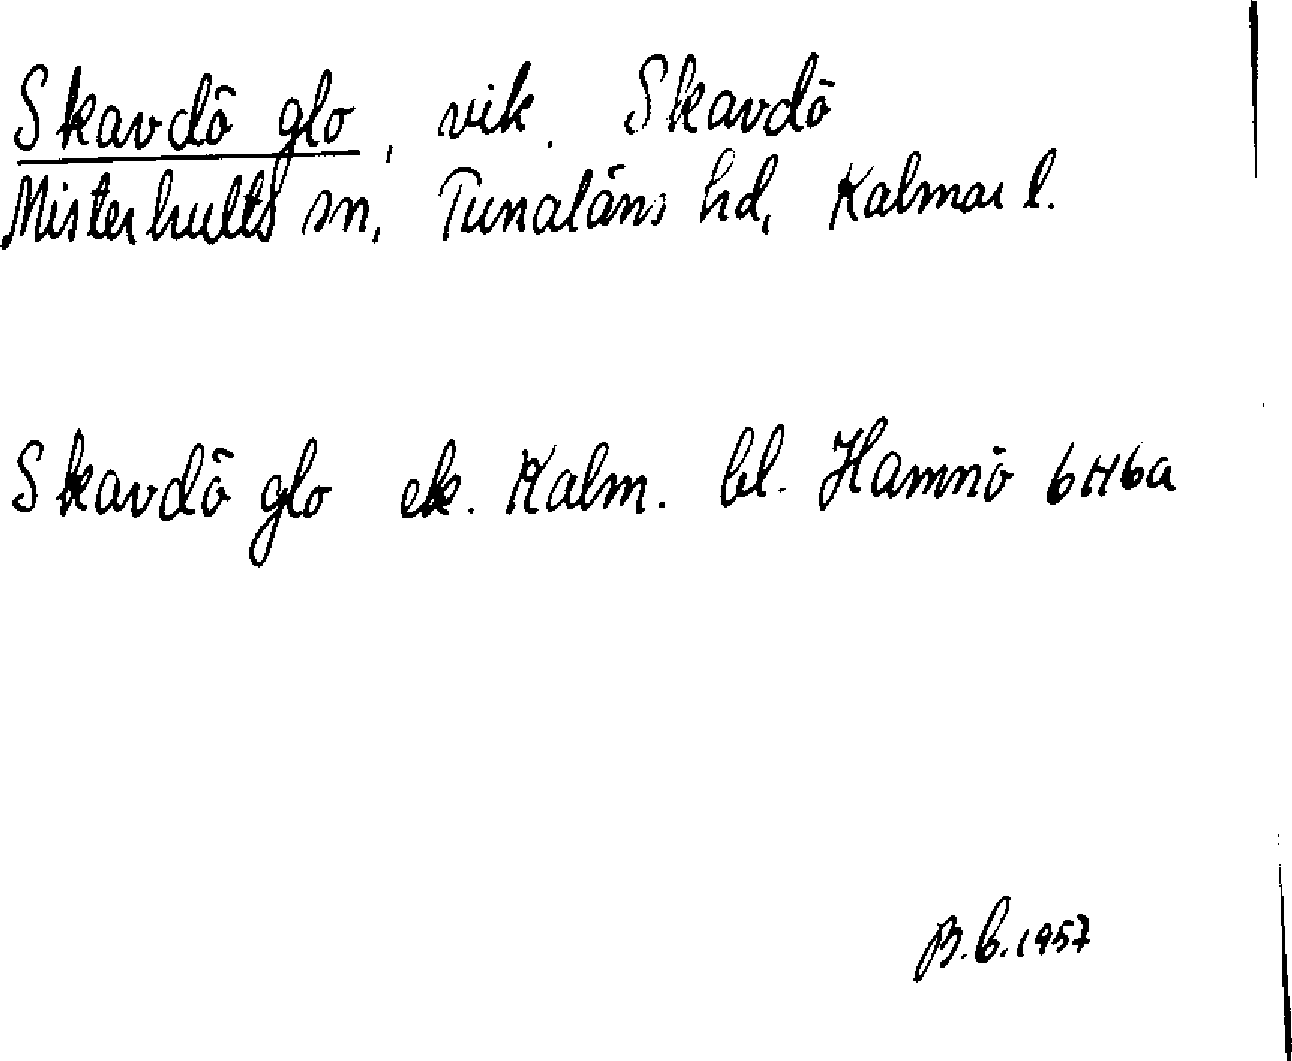 Skavdö glo, vik. Skavdö
Misterhults sn, Tunaläns hd, Kalmar l.
Skavdö glo ek. Kalm. bl. Hamnö 6H6a
B.G.1957